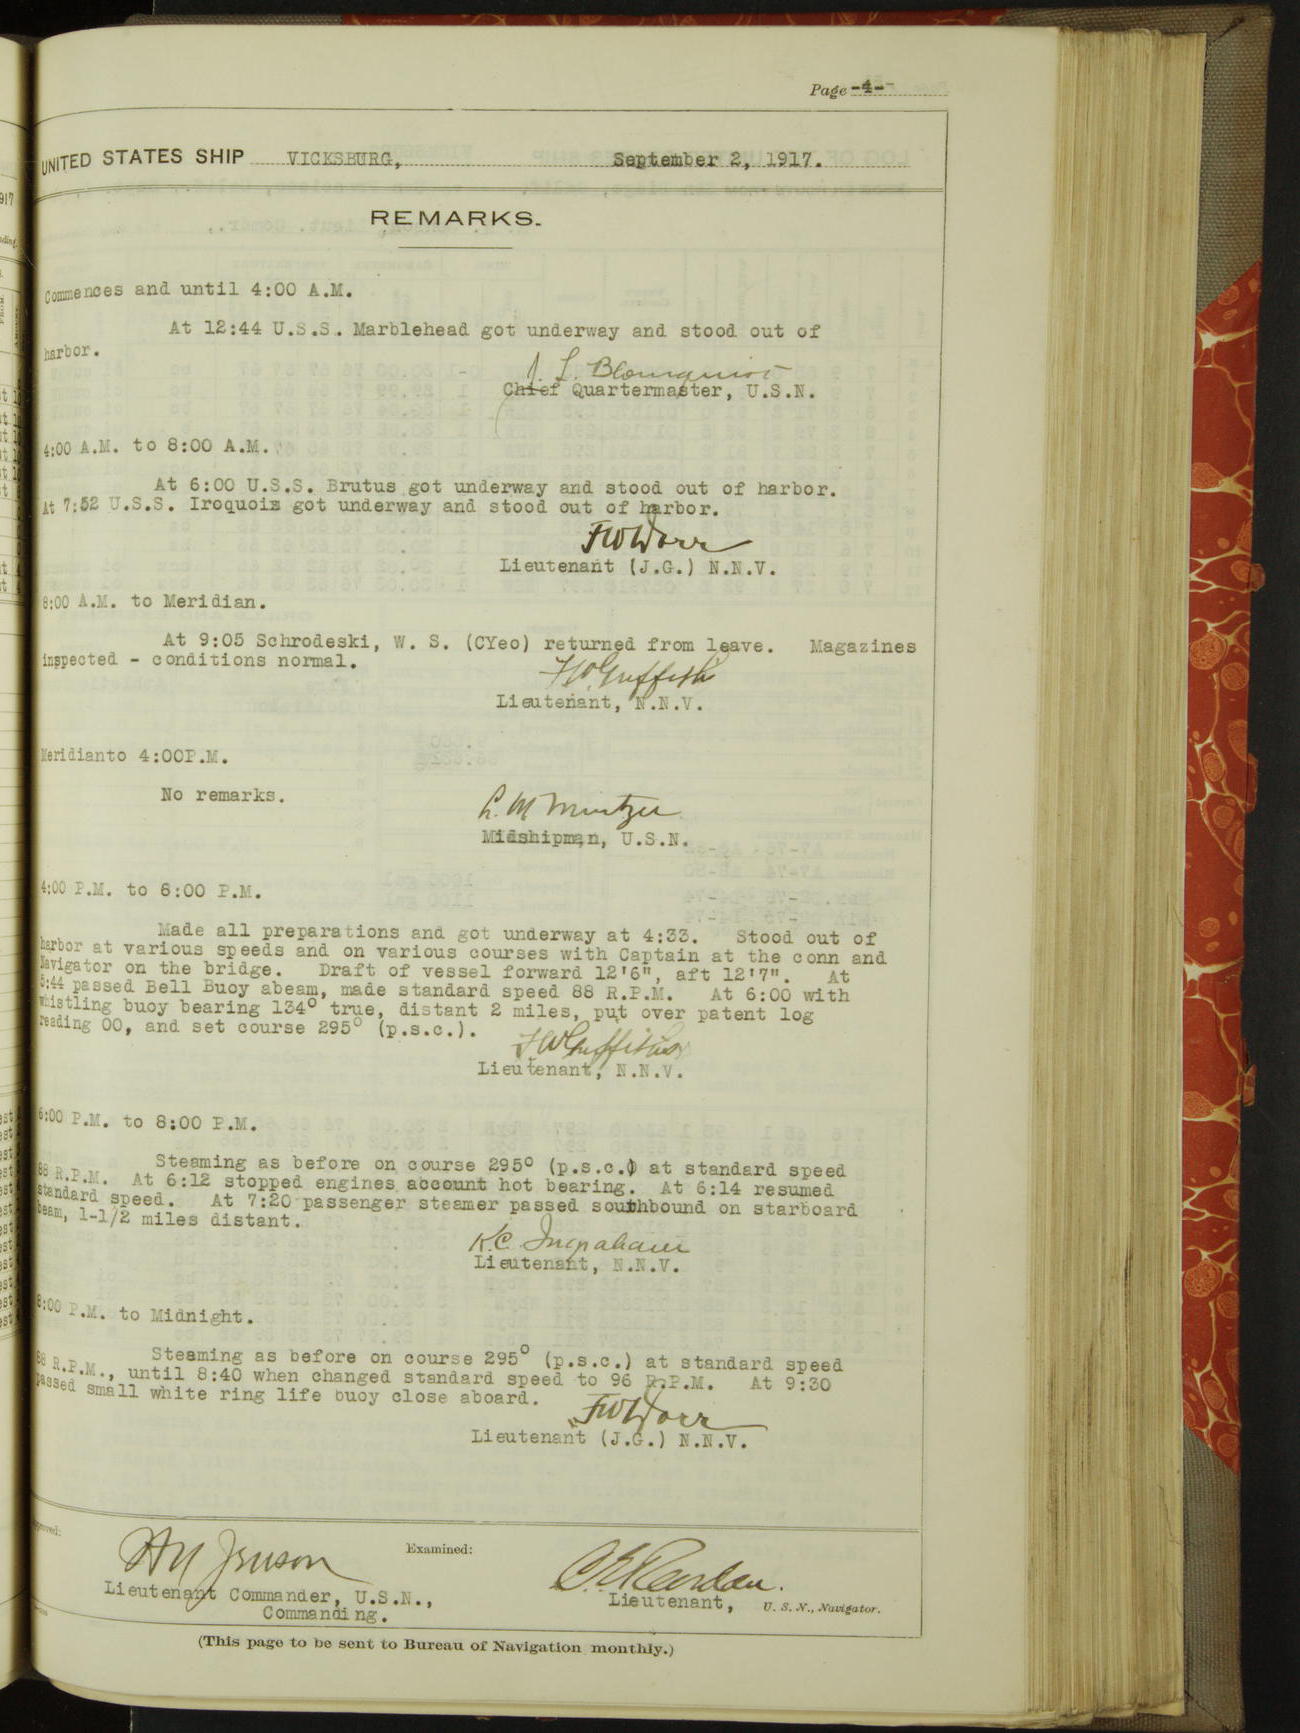 Page -4-
UNITED STATES SHIP VICKSBURG, September 2, 1917.
REMARKS.
Commences and until 4:00 A.M.
At 12:44 U.S.S. Marblehead got underway and stood out of
harbor.
J. L. Blomquist
Chief Quartermaster, U.S.N.
4:00 A.M. to 8:00 A.M.
At 6:00 U.S.S. Brutus got underway and stood out of harbor.
At 7:52 U.S.S. Iroquois got underway and stood out of harbor.
F W Dorr
Lieutenant (J.G.) N.N.V.
8:00 A.M. to Meridian.
At 9:05 Schrodeski, W. S. (CYeo) returned from leave. Magazines
inspected - conditions normal.
F W Griffith
Lieutenant, N.N.V.
Meridianto 4:00P.M.
No remarks.
L. M Mintzer
Midshipman, U.S.N.
4:00 P.M. to 6:00 P.M.
Made all preparations and got underway at 4:33. Stood out of
harbor at various speeds and on various courses with Captain at the conn and
Navigator on the bridge. Draft of vessel forward 12'6", aft 12'7". At
5:44 passed Bell Buoy abeam, made standard speed 88 R.P.M. At 6:00 with
whistling buoy bearing 134° true, distant 2 miles, put over patent log
reading 00, and set course 295° (p.s.c.).
F W Griffith
Lieutenant, N.N.V.
6:00 P.M. to 8:00 P.M.
Steaming as before on course 295° (p.s.c.) at standard speed
88 R.P.M. At 6:12 stopped engines account hot bearing. At 6:14 resumed
standard speed. At 7:20 passenger steamer passed southbound on starboard
beam, 1-1/2 miles distant.
K.C. Ingraham
Lieutenant, N.N.V.
8:00 P.M. to Midnight.
Steaming as before on course 295° (p.s.c.) at standard speed
88 R.P.M., until 8:40 when changed standard speed to 96 R.P.M. At 9:30
passed small white ring life buoy close aboard.
F W Dorr
Lieutenant (J.G.) N.N.V.
Approved:
Examined:
Lieutenant Commander, U.S.N.,
Commanding.
Lieutenant, U. S. N., Navigator.
(This page to be sent to Bureau of Navigation monthly.)